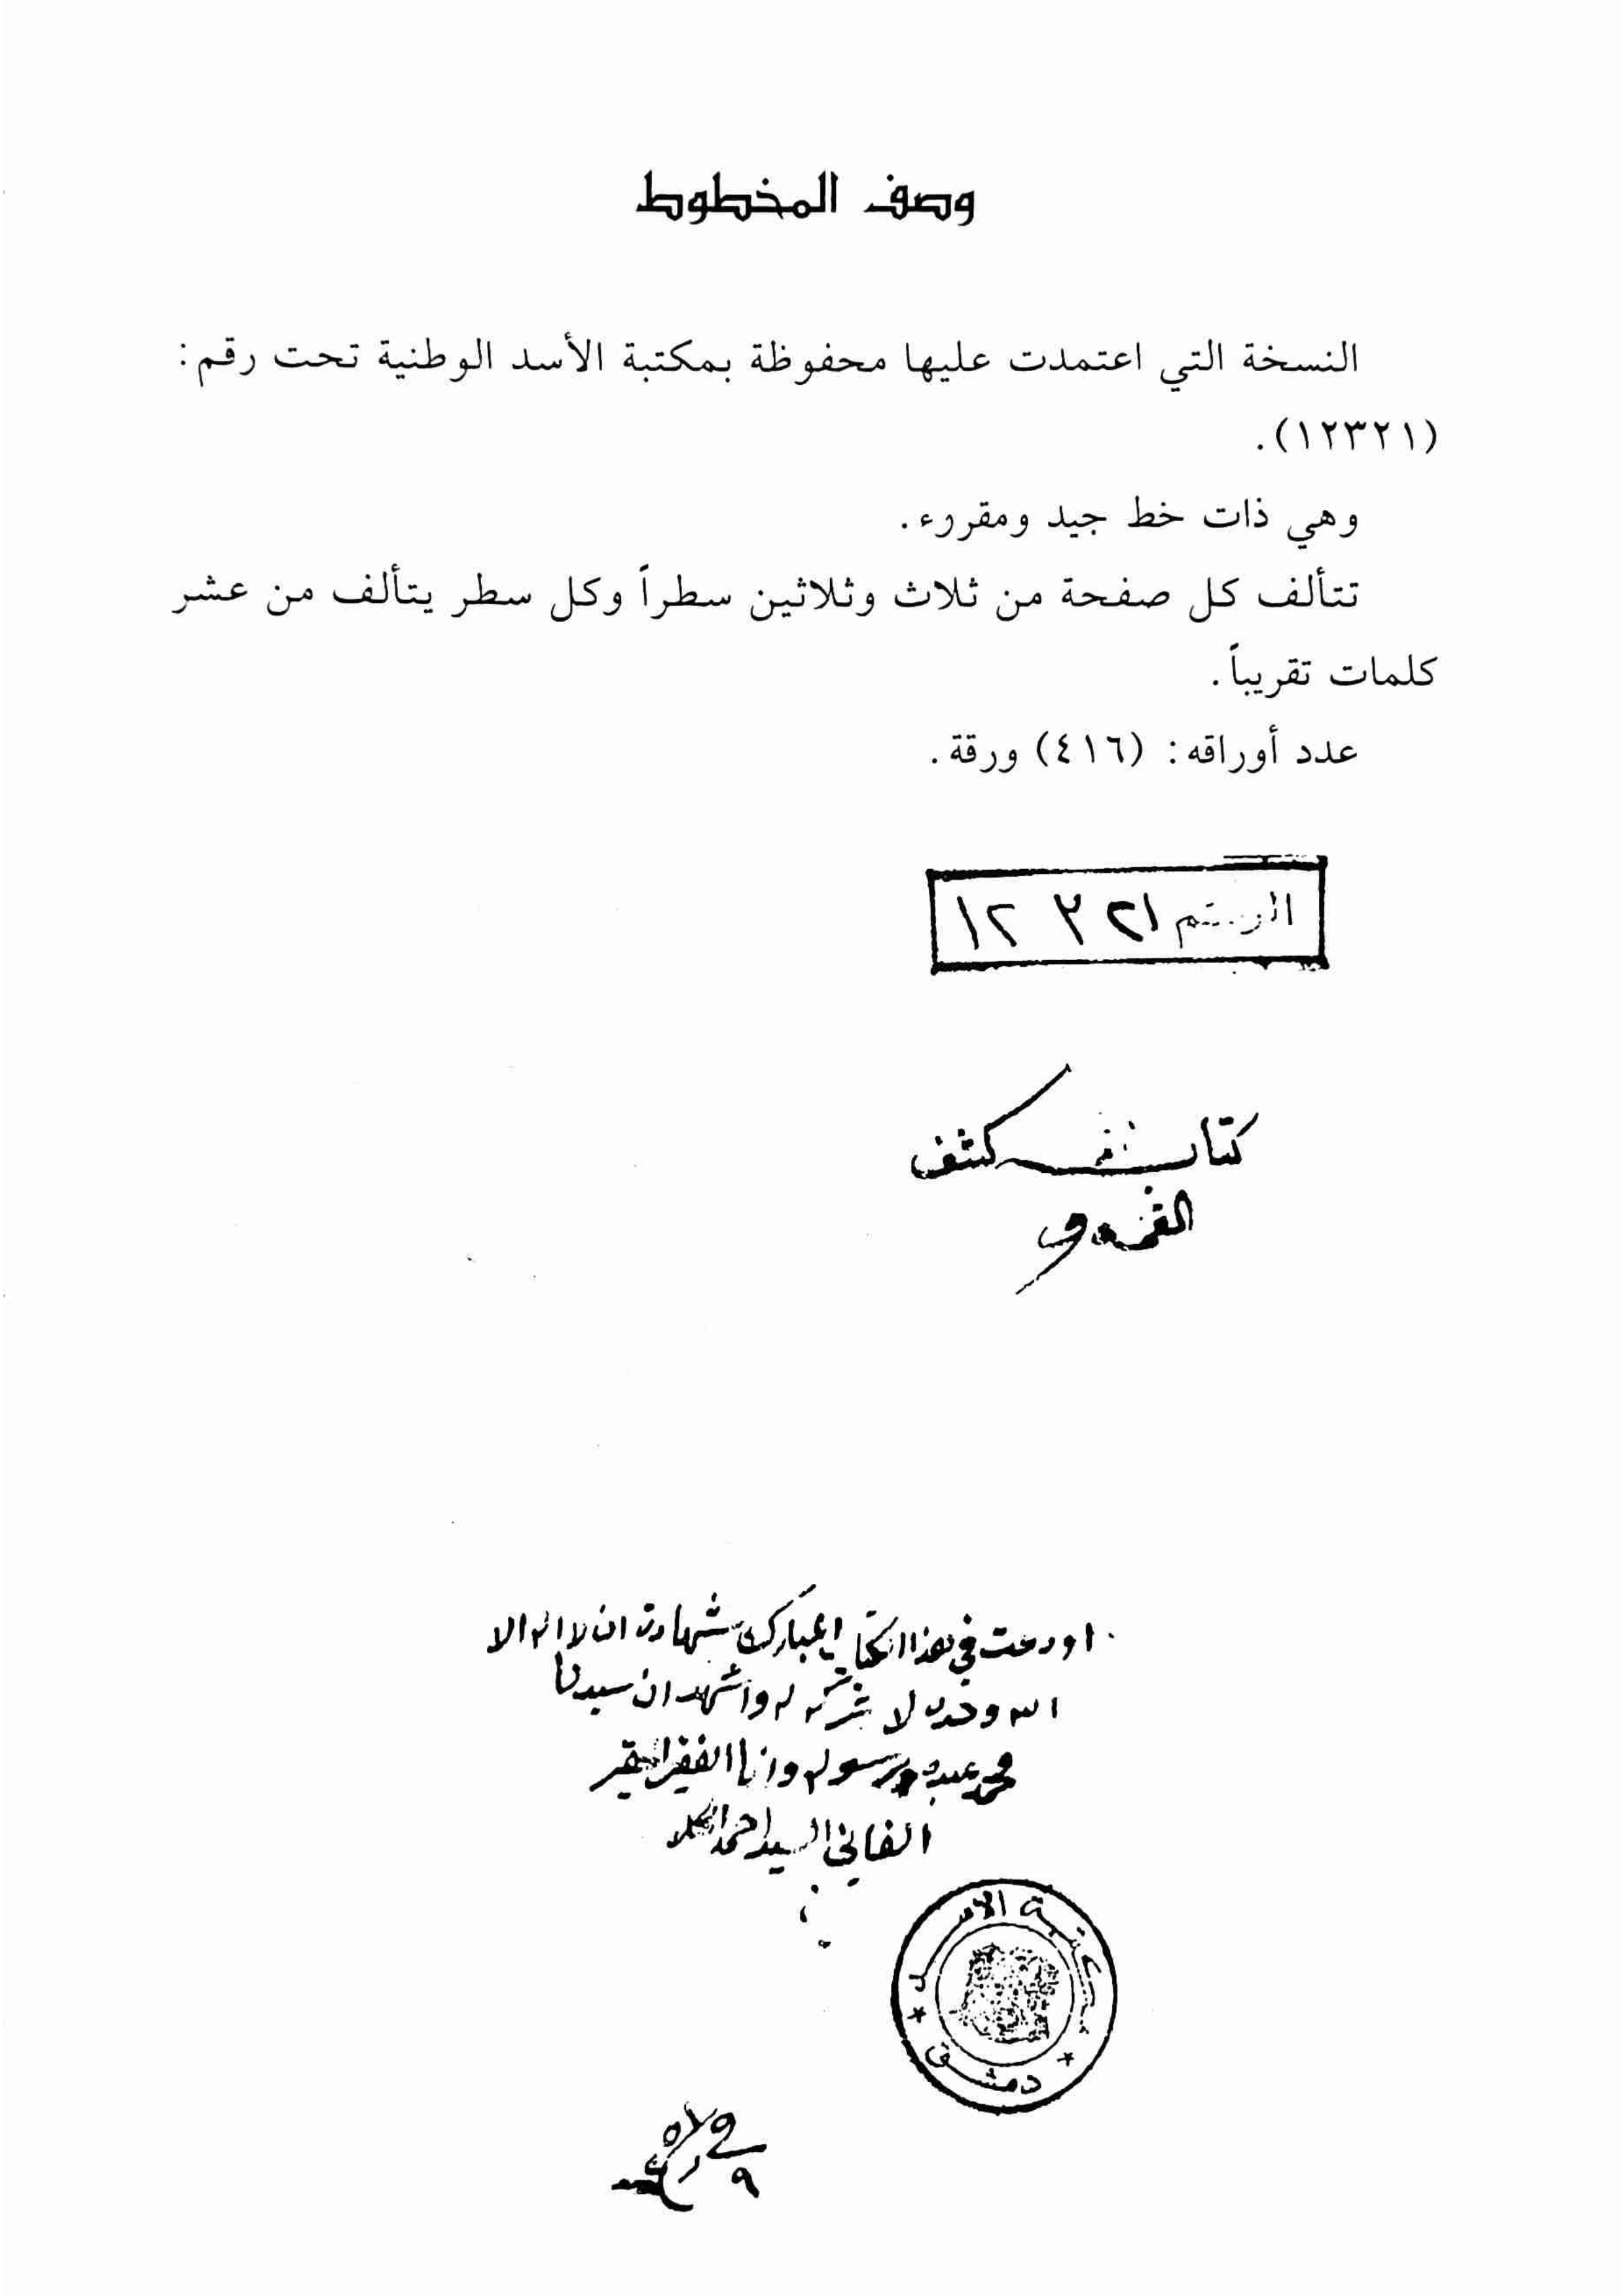 وصف المخطوط
النسخة التي اعتمدت عليها محفوظة بمكتبة الأسد الوطنية تحت رقم:
(١٢٣٢١).
وهي ذات خط جيد ومقروء.
تتألف كل صفحة من ثلاث وثلاثين سطراً وكل سطر يتألف من عشر
كلمات تقريباً.
عدد أوراقه: (٤١٦) ورقة.
الرقم ١٢٣٢١
كتاب كشف
اودعت في هذا الكتاب المبارك شهادة ان لا اله الا
الله وحده لا شريك له واشهد ان سيدنا
محمد عبده ورسوله وانا الفقير الحقير
الفاني السيد احمد
مكتبة الأسد
دمشق